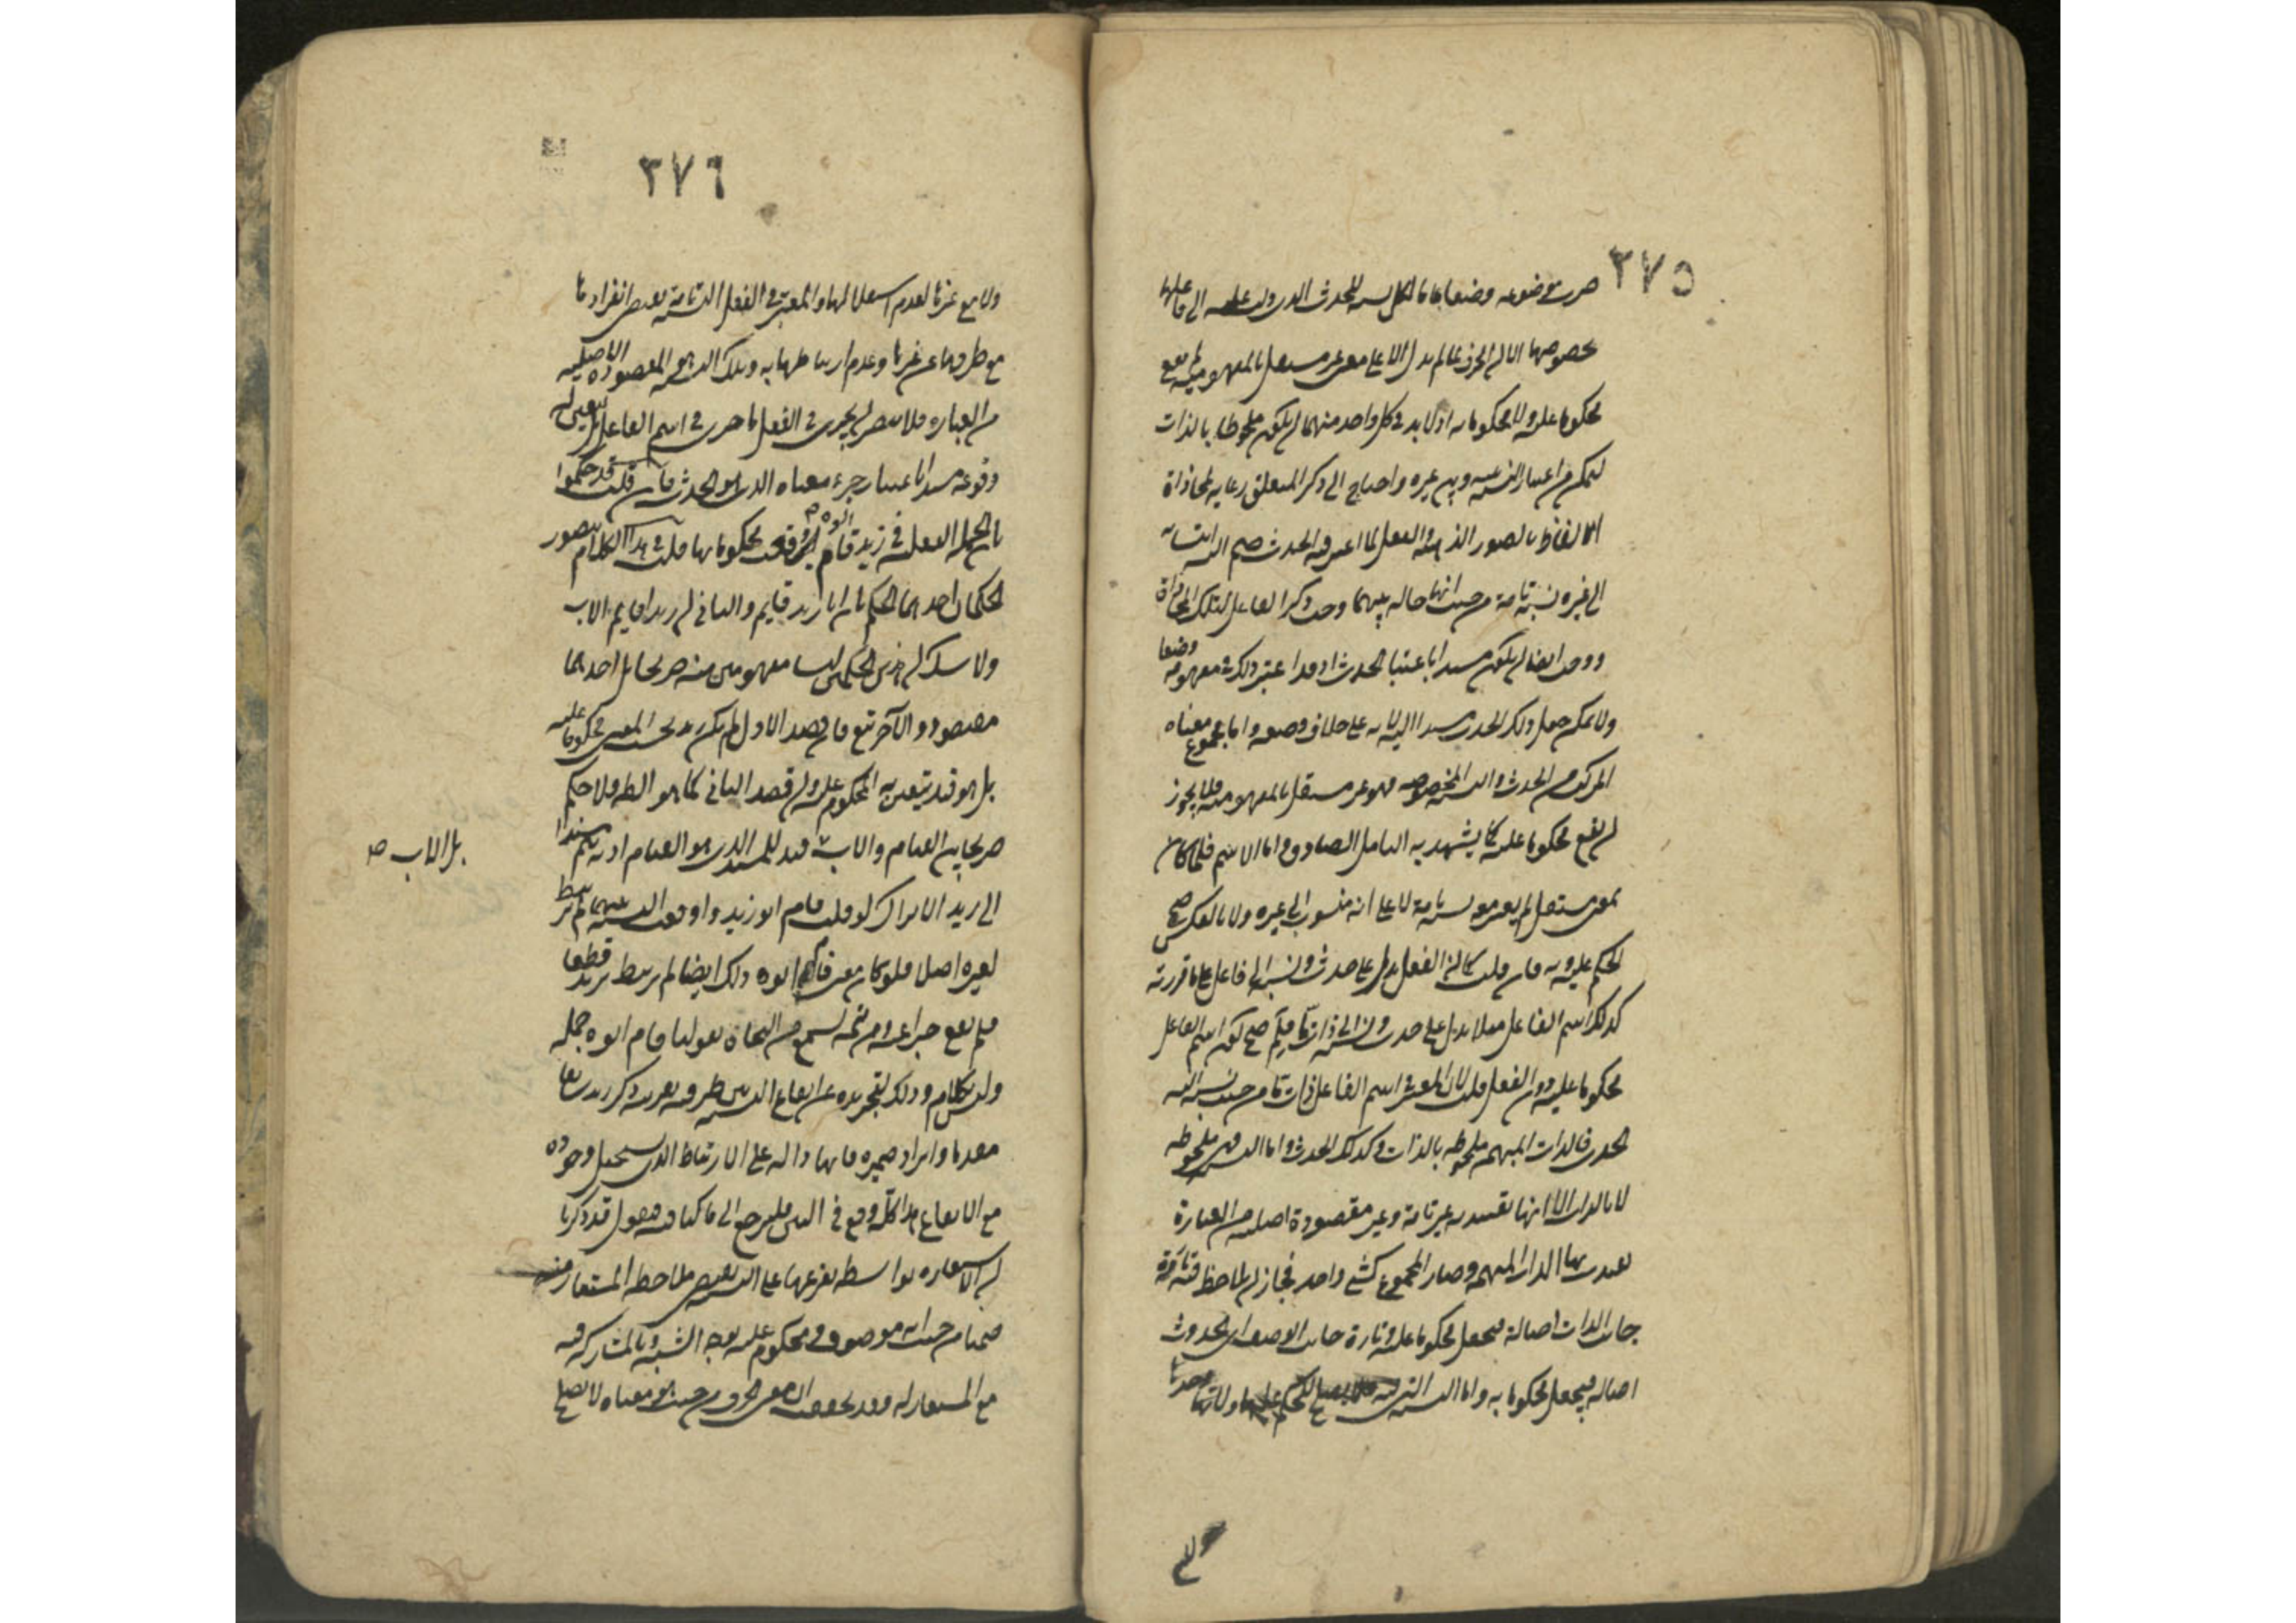 ٣٧٥
ضرب موضوعة وضعا عاما لكل نسبة للحدث الذي دلت عليه إلى فاعلها
بخصوصها إلا أن الحرف لما لم يدل إلا على معنى غير مستقل بالمفهومية لم يقع
محكوما عليه ولا محكوما به إذ لا بد في كل واحد منهما أن يكون ملحوظا بالذات
ليتمكن من اعتبار النسبة بينه وبين غيره واحتاج إلى ذكر المتعلق رعاية لمحاذاة
الألفاظ بالصور الذهنية والفعل لما اعتبر فيه الحدث وضم إليه انتسابه
إلى غيره نسبة تامة من حيث إنها حالة بينهما وجب ذكر الفاعل لتلك المحاذاة
ووجب أيضا أن يكون مسندا باعتبار الحدث إذ قد اعتبر ذلك في مفهومه وضعا
ولا يمكن جعل ذلك الحدث مسندا إليه لأنه على خلاف وضعه وأما مجموع معناه
المركب من الحدث والنسبة المخصوصة فهو غير مستقل بالمفهومية فلا يجوز
أن يقع محكوما عليه كما يشهد به التأمل الصادق وأما الاسم فلما كان
بمعنى مستقل لم يعتبر معه نسبة تامة لا على أنه منسوب إلى غيره ولا بالعكس صح
الحكم عليه وبه فإن قلت كما أن الفعل يدل على حدث ونسبة إلى فاعل على ما قررته
كذلك اسم الفاعل مثلا يدل على حدث ونسبة إلى ذات ما فلم صح كون اسم الفاعل
محكوما عليه دون الفعل قلت لأن المعتبر في اسم الفاعل ذات ما من حيث نسب إليه
الحدث فالذات المبهمة ملحوظة بالذات وكذلك الحدث وأما النسبة فهي ملحوظة
لا بالذات إلا أنها تقييدية غير تامة وغير مقصودة أصلية من العبارة
تقيدت بها الذات المبهمة وصار المجموع كشيء واحد فجاز أن يلاحظ فيه تارة
جانب الذات أصالة فيجعل محكوما عليه وتارة جانب الوصف أي الحدث
أصالة فيجعل محكوما به وأما النسبة التي فيه فلا يصلح للحكم عليها ولا بها وحدها
٣٧٦
ولا مع غيرها لعدم استقلالها والمعتبر في الفعل النسبة تامة يقتضي انفرادها
مع طرفيها عن غيرها وعدم ارتباطها به وتلك النسبة هي المقصودة الأصلية
من العبارة فلا يتصور أن يجري في الفعل ما جرى في اسم الفاعل بل يتعين له
وقوعه مسندا باعتبار جزء معناه الذي هو الحدث فإن قلت قد حكموا
بأن الجملة الفعلية في زيد قام أبوه وقعت محكوما بها قلت في هذا الكلام يتصور
الحكمان أحدهما الحكم بأن أبا زيد قايم والثاني أن زيدا قايم الاب
ولا شك أن هذين الحكمين ليسا بمفهومين منه صريحا بل أحدهما
مقصود والآخر تبع فإن قصد الأول لم يكن زيد بحسب المعنى محكوما عليه
بل هو قيد يتعين به المحكوم عليه وإن قصد الثاني كما هو الظ فلا حكم
صريحا بين القيام والاب بل الاب قيد للمسند الذي هو القيام إذ به يتم مسندا
إلى زيد ألا ترى أنك لو قلت قام أبو زيد وأوقعت النسبة بينهما لم يرتبط
بغيره أصلا فلو كان معنى قام أبوه ذلك أيضا لم يرتبط بزيد قطعا
فلم يقع خبرا عنه ومن ثمة تسمع من النحاة يقولون قام أبوه جملة
وليس بكلام وذلك لتجريده عن إيقاع النسبة بين طرفيه بقرينة ذكر زيد سابقا
مقدما وإيراد ضميره فإنها دالة على الارتباط الذي يستحيل وجوده
مع الايقاع هذا كله وقع في البين فلنرجع إلى ما كنا فيه فنقول قد ذكرنا
أن الاستعارة بواسطة تفرعها على التشبيه يقتضي ملاحظة المستعار منه
ضمنا من حيث إنه موصوف ومحكوم عليه بوجه الشبه وبالمشاركة فيه
مع المستعار له وقد تحققت أن معنى الحرف من حيث هو معناه لا يصلح
بل الاب صح